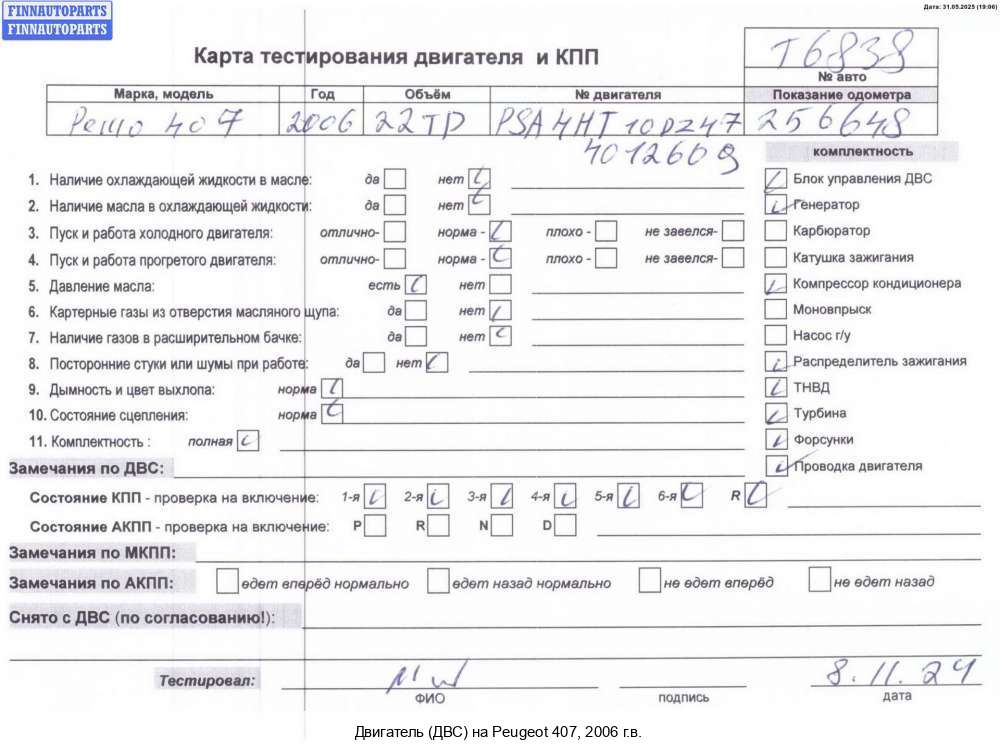 FINNAUTOPARTS
FINNAUTOPARTS
Дата: 31.05.2025 (19:06)
Карта тестирования двигателя и КПП
T6838
№ авто
Марка, модель Год Объём № двигателя Показание одометра
407 2006 22TD PSA4HT10DZ47 256648
4012609
комплектность
1. Наличие охлаждающей жидкости в масле: да нет
Блок управления ДВС
2. Наличие масла в охлаждающей жидкости: да нет
Генератор
3. Пуск и работа холодного двигателя: отлично- норма - плохо - не завелся-
Карбюратор
4. Пуск и работа прогретого двигателя: отлично- норма - плохо - не завелся-
Катушка зажигания
5. Давление масла: есть нет
Компрессор кондиционера
6. Картерные газы из отверстия масляного щупа: да нет
Моновпрыск
7. Наличие газов в расширительном бачке: да нет
Насос г/у
8. Посторонние стуки или шумы при работе: да нет
Распределитель зажигания
9. Дымность и цвет выхлопа: норма
ТНВД
10. Состояние сцепления: норма
Турбина
11. Комплектность : полная
Форсунки
Замечания по ДВС:
Проводка двигателя
Состояние КПП - проверка на включение: 1-я 2-я 3-я 4-я 5-я 6-я R
Состояние АКПП - проверка на включение: P R N D
Замечания по МКПП:
Замечания по АКПП: едет вперёд нормально едет назад нормально не едет вперёд не едет назад
Снято с ДВС (по согласованию!):
Тестировал: 8.11.24
ФИО подпись дата
Двигатель (ДВС) на Peugeot 407, 2006 г.в.